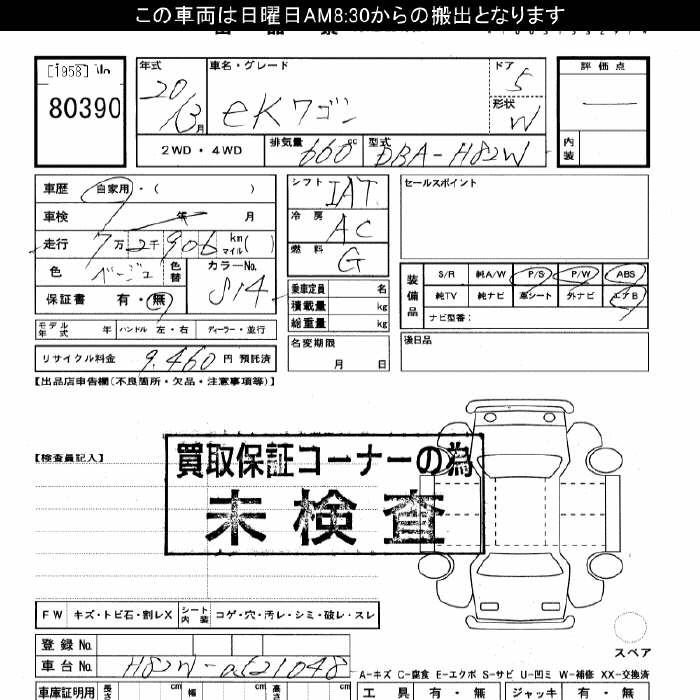 この車両は日曜日AM8:30からの搬出となります
[1958]
80390
年式
20/3月
車名・グレード
eKワゴン
ドア
5
形状
W
評価点
内装
2WD・4WD
排気量
660cc
型式
DBA-H82W
車歴
自家用・( )
車検
年 月
走行
7万2千906km マイル( )
色
ベージュ
色替
カラーNo.
S14
保証書 有・無
モデル年式 年 ハンドル 左・右 ディーラー・並行
リサイクル料金 9,460円 預託済
シフト
IAT
冷房
AC
燃料
G
乗車定員 名
積載量 kg
総重量 kg
名変期限
月 日
セールスポイント
装備品
S/R 純A/W P/S P/W ABS
純TV 純ナビ 革シート 外ナビ エアB
ナビ型番:
後日品
【出品店申告欄(不良箇所・欠品・注意事項等)】
【検査員記入】
買取保証コーナーの為
未検査
FW キズ・トビ石・割レX シート内装 コゲ・穴・汚レ・シミ・破レ・スレ
スペア
登録No.
車台No. H82W-
A-キズ C-腐食 E-エクボ S-サビ U-凹ミ W-補修 XX-交換済
車庫証明用 長さ cm 幅 cm 高さ cm
工具 有・無 ジャッキ 有・無